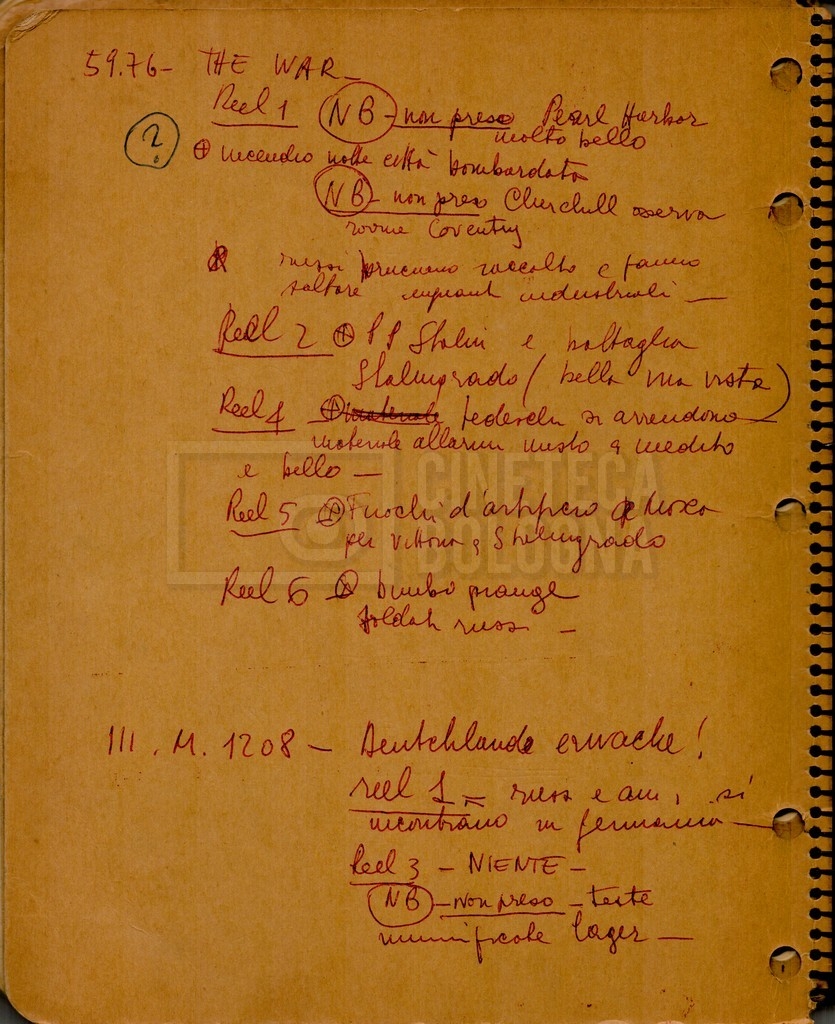 59.76- THE WAR_
Reel 1 NB - non preso Pearl Harbor
molto bello
?
⊕ incendio notte città bombardata
NB - non preso Churchill osserva
rovine Coventry
russi bruciano raccolto e fanno
saltare impianti industriali —
Reel 2 ⊕ Stalin e battaglia
Stalingrado (bella mai vista)
Reel 4 ⊕ materiale tedeschi si arrendono
materiale allarmi misto a inedito
e bello —
Reel 5 ⊕ Fuochi d'artificio a Mosca
per vittoria a Stalingrado
Reel 6 bimbo piange
soldati russi —
CINETECA
BOLOGNA
III. M. 1208 - Deutchlande erwache!
reel 1 = russi e am, si
incontrano in Germania —
Reel 3 - NIENTE -
NB - non preso - teste
mummificate lager —